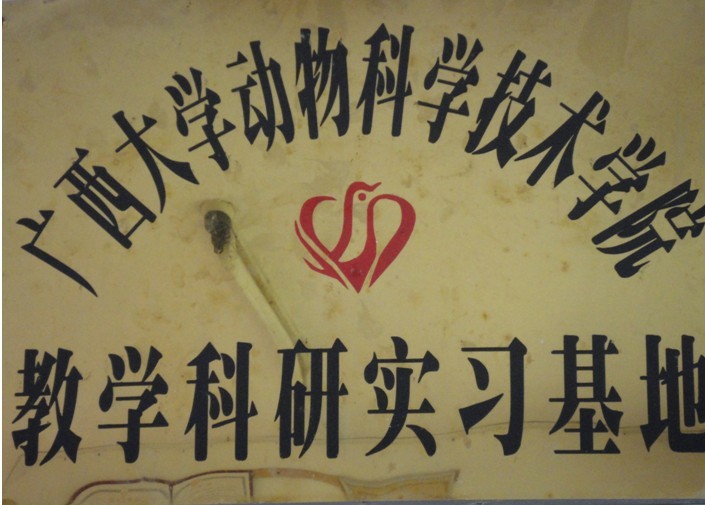 广西大学动物科学技术学院
教学科研实习基地